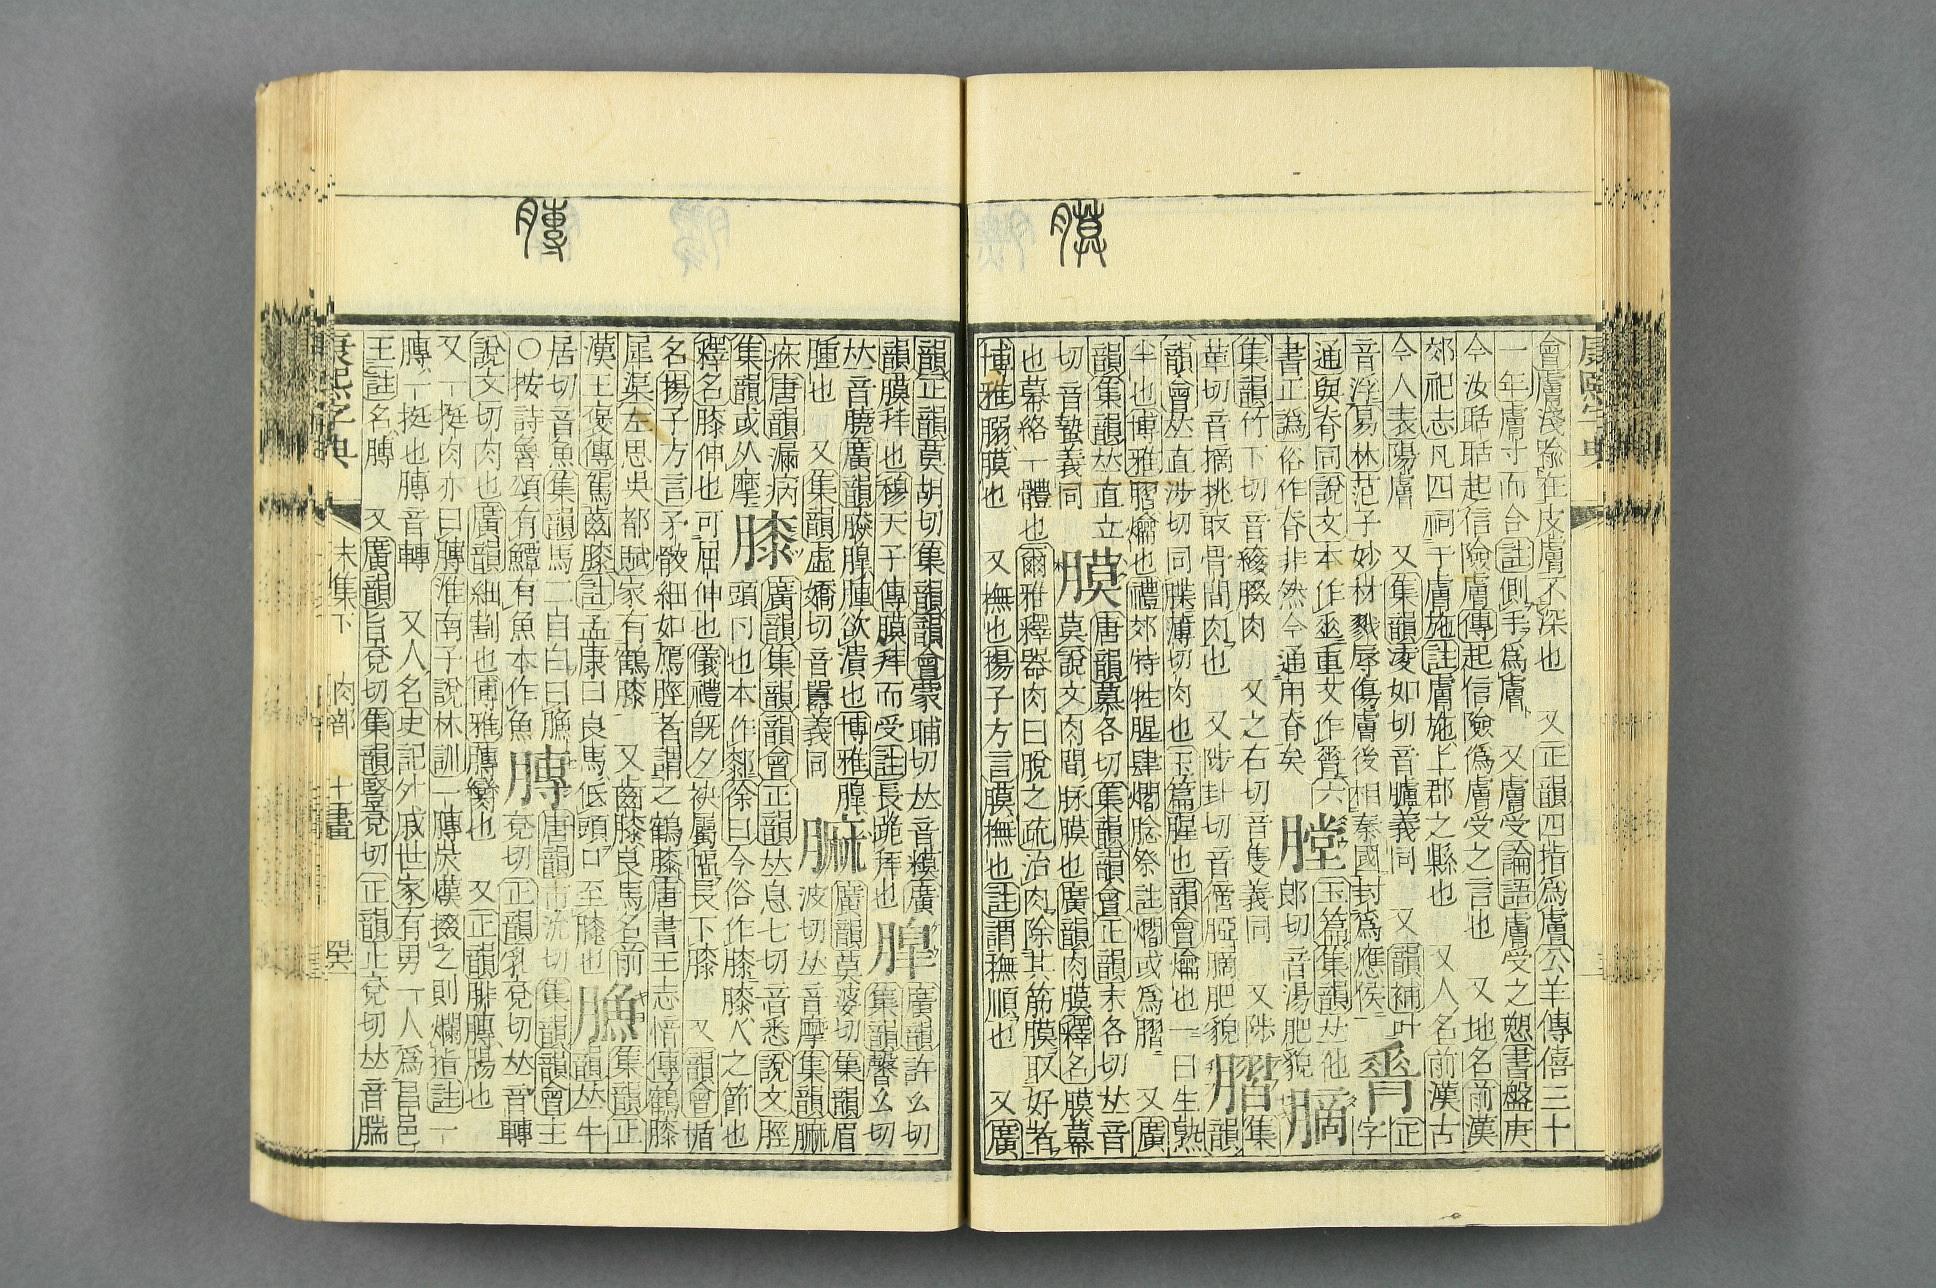 康熙字典
會膚淺喻在皮膚不深也 又正韻四指爲膚公羊傳僖三十
一年膚寸而合註側手爲膚 又膚受論語膚受之愬書盤庚
今汝聒聒起信險膚傳起信險僞膚受之言也 又地名前漢
郊祀志凡四祠于膚施註膚施上郡之縣也 又人名前漢古
今人表陽膚 又集韻凌如切音臚義同 又韻補叶
音浮易林范子妙材戮辱傷膚後相秦國封爲應侯
膌 正字
通與脊同說文本作重文作膌六
書正譌俗作脊非然今通用脊矣
膛 玉篇集韻𠀤他
郎切音湯肥貌
集韻竹下切音綾腏肉 又之石切音隻義同 又陟
革切音摘挑取骨間肉也 又陟卦切音腯肥貌
䐲 集韻
韻會𠀤直涉切同牒薄切肉也玉篇腥也韻會爚也一曰生熟
半也博雅䐲爚也禮郊特牲腥肆爓腍祭註爓或爲䐲 又廣
韻集韻𠀤直立
切音蟄義同
膜 唐韻慕各切集韻韻會正韻末各切𠀤音
莫說文肉間脉膜也廣韻肉膜釋名膜幕
也幕絡一體也爾雅釋器肉曰脫之疏治肉除其筋膜取好者
博雅膜也 又撫也揚子方言膜撫也註謂撫順也 又廣
韻正韻莫胡切集韻韻會蒙晡切𠀤音模廣
韻膜拜也穆天子傳膜拜而受註長跪拜也
廣韻許幺切
集韻馨幺切
𠀤音膮廣韻腫欲潰也博雅
腫也 又集韻虛嬌切音囂義同
廣韻莫婆切集韻眉
波切𠀤音摩集韻
唐韻漏病
集韻或从摩
膝 廣韻集韻韻會正韻𠀤息七切音悉說文脛
頭卪也本作厀徐曰今俗作膝膝人之節也
釋名膝伸也可屈伸也儀禮旣夕袂屬幅長下膝 又韻會楯
名揚子方言矛骹細如鴈脛者謂之鶴膝唐書王志愔傳鶴膝
犀渠左思吳都賦家有鶴膝 又齒膝良馬名前
漢王褒傳駕齧膝註孟康曰良馬低頭口至膝也
集韻正
韻𠀤牛
居切音魚集韻馬二目白曰
○按詩魯頌有驔有魚本作魚
膞 唐韻市沇切集韻韻會主
兗切正韻乳兗切𠀤音轉
說文切肉也廣韻細割也博雅膞臠也 又正韻腓膞腸也
又一挺肉亦曰膞淮南子說林訓一膞炭熯掇之則爛指註一
膞一挺也膞音轉 又人名史記外戚世家有男一人爲昌邑
王註名膞 又廣韻旨兗切集韻豎兗切正韻止兗切𠀤音腨
康熙字典 未集下 肉部 十一畫